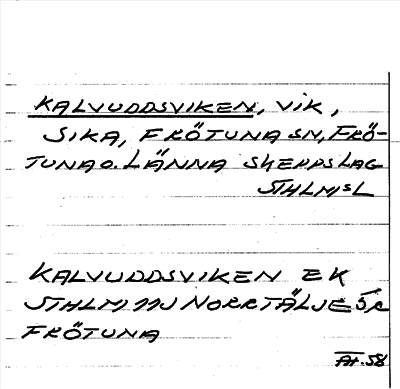 KALVUDDSVIKEN, VIK,
SIKA, FRÖTUNA SN, FRÖ-
TUNA O. LÄNNA SKEPPSLAG
STHLMSL
KALVUDDSVIKEN EK
STHLM 11J NORRTÄLJE 5R
FRÖTUNA
AH. 58